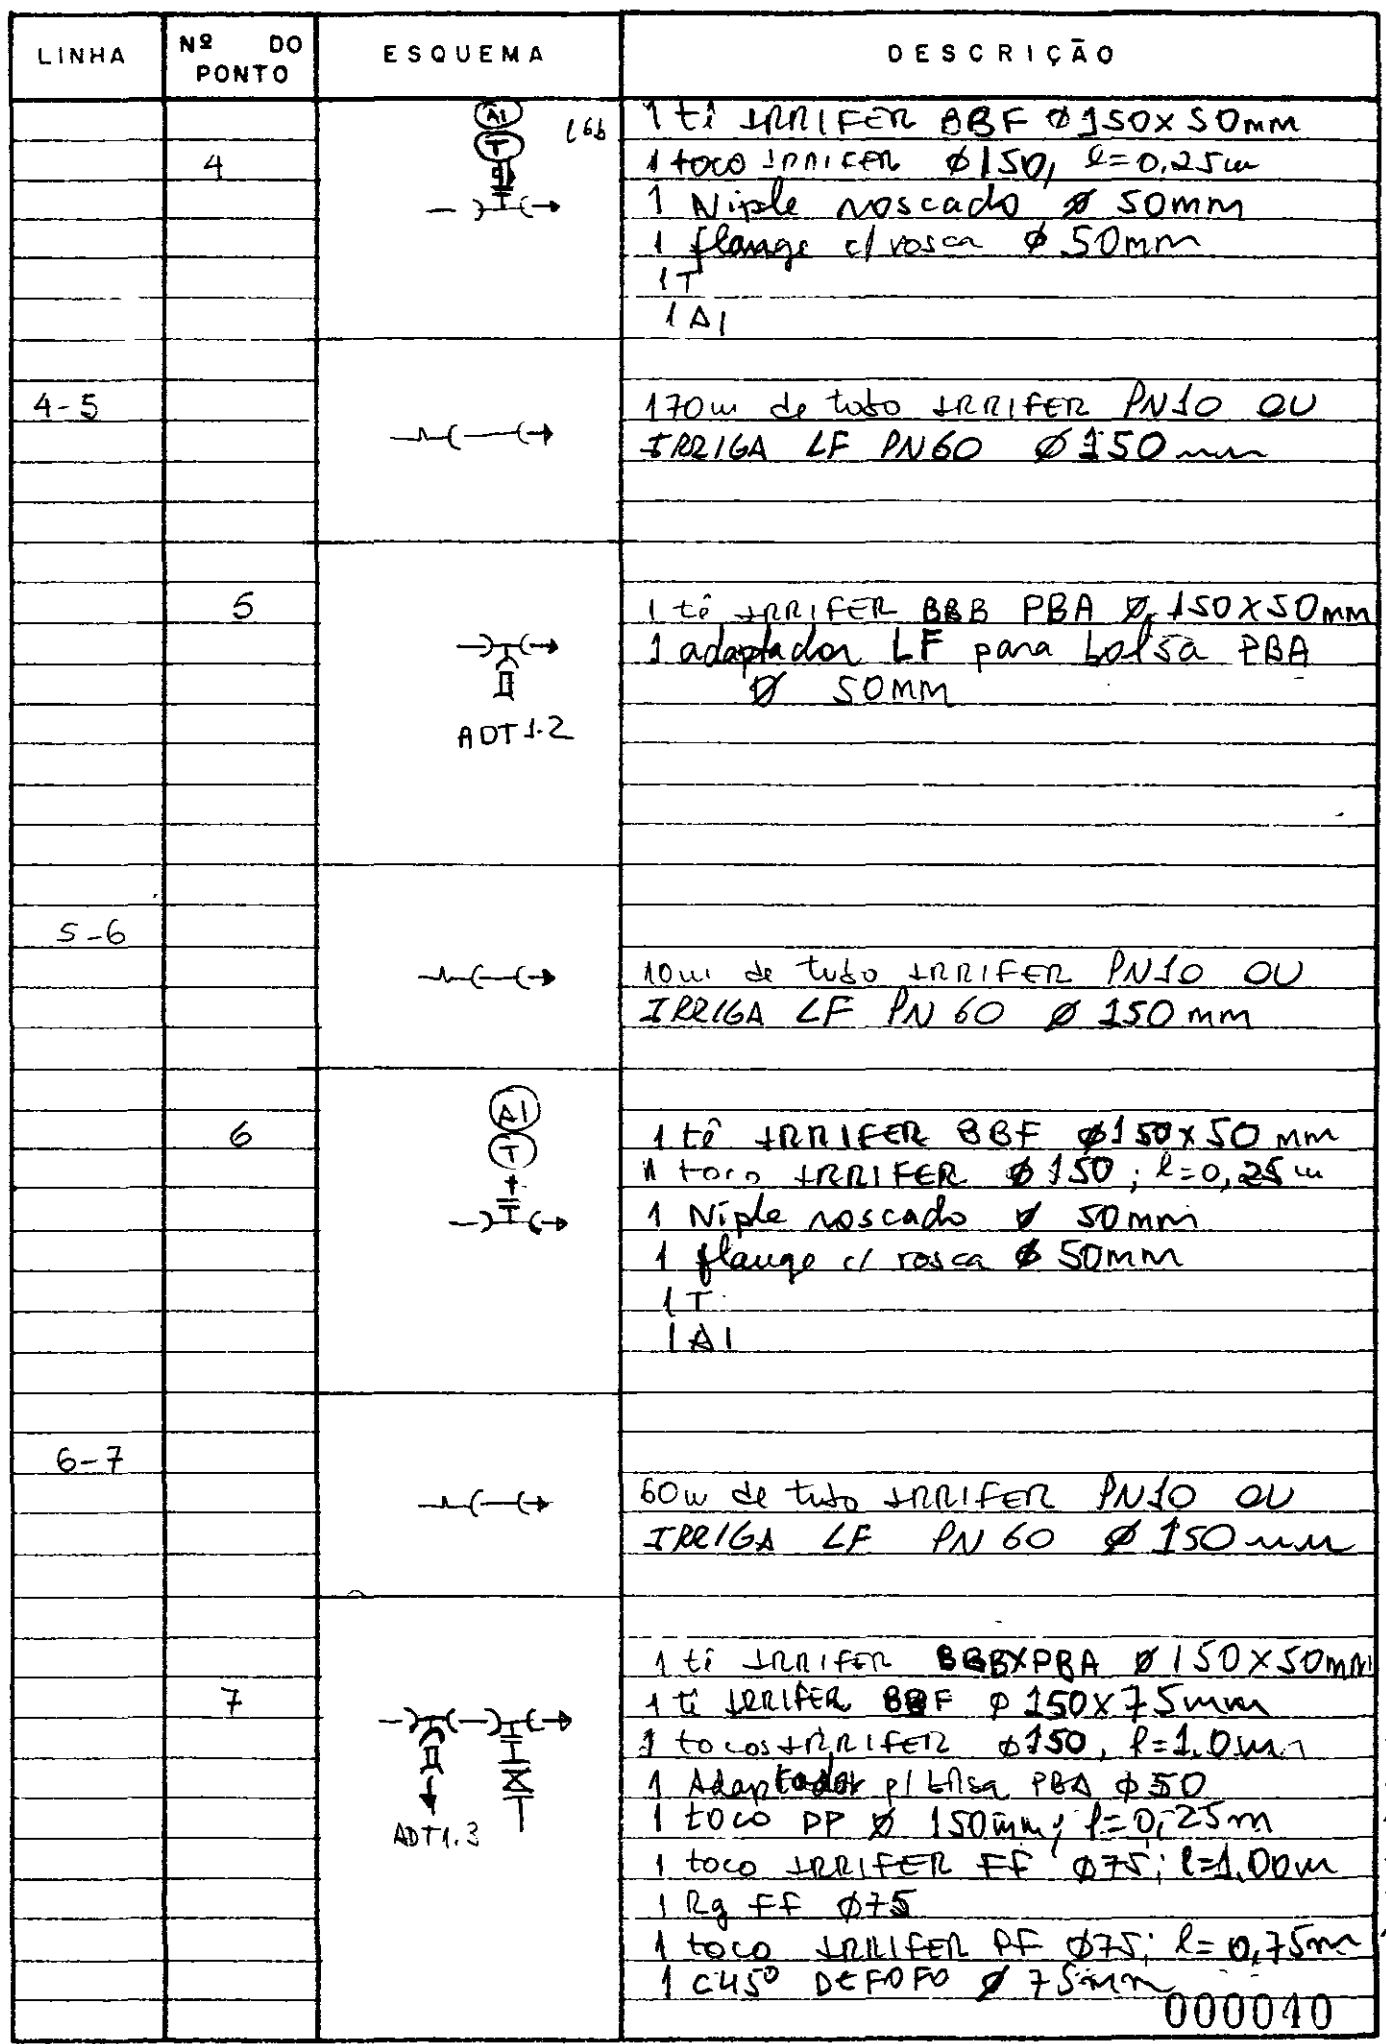 LINHA Nº DO PONTO ESQUEMA DESCRIÇÃO
AI
T
4
1 tê IRRIFER BBF Ø 150x50mm
1 toco IRRIFER Ø150, l=0,25m
1 Niple roscado Ø 50mm
1 flange c/ rosca Ø 50mm
1T
1AI
4-5
170m de tubo IRRIFER PN10 OU
IRRIGA LF PN60 Ø 150 mm
5
ADT1.2
1 tê IRRIFER BBB PBA Ø 150x50mm
1 adaptador LF para bolsa PBA
Ø 50MM
5-6
10m de tubo IRRIFER PN10 OU
IRRIGA LF PN 60 Ø 150 mm
AI
T
6
1 tê IRRIFER BBF Ø150x50 mm
1 toco IRRIFER Ø 150; l=0,25m
1 Niple roscado Ø 50mm
1 flange c/ rosca Ø 50mm
1T
1AI
6-7
60m de tubo IRRIFER PN10 OU
IRRIGA LF PN 60 Ø 150 mm
7
ADT1.3
1 tê IRRIFER BBBXPBA Ø 150x50mm
1 tê IRRIFER BBF Ø 150x75mm
1 tocos IRRIFER Ø150, l=1,0m
1 Adaptador p/ bolsa PBA Ø 50
1 toco PP Ø 150mm; l=0,25m
1 toco IRRIFER FF Ø75; l=1,00m
1 Rg FF Ø75
1 toco IRRIFER PF Ø75; l=0,75m
1 C45º DEFOFO Ø 75mm
000040